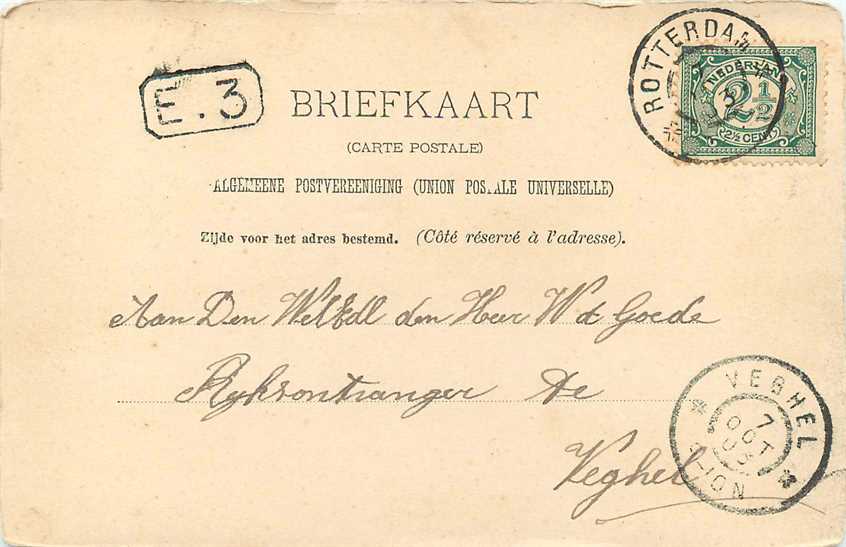 E.3
BRIEFKAART
(CARTE POSTALE)
ALGEMEENE POSTVEREENIGING (UNION POSTALE UNIVERSELLE)
Zijde voor het adres bestemd. (Côté réservé à l'adresse).
ROTTERDAM
NEDERLAND
2½
2½ CENT
Aan Den WelEdl den Heer W de Goede
Ryksontvanger te
Veghel
VEGHEL
7
OCT